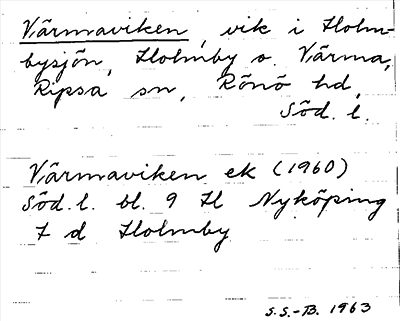 Värmaviken, vik i Holm-
bysjön, Holmby o. Värma,
Ripsa sn, Rönö hd,
Söd. l.
Värmaviken ek (1960)
Söd. l. bl. 9 H Nyköping
7 d Holmby
S.S.-B. 1963